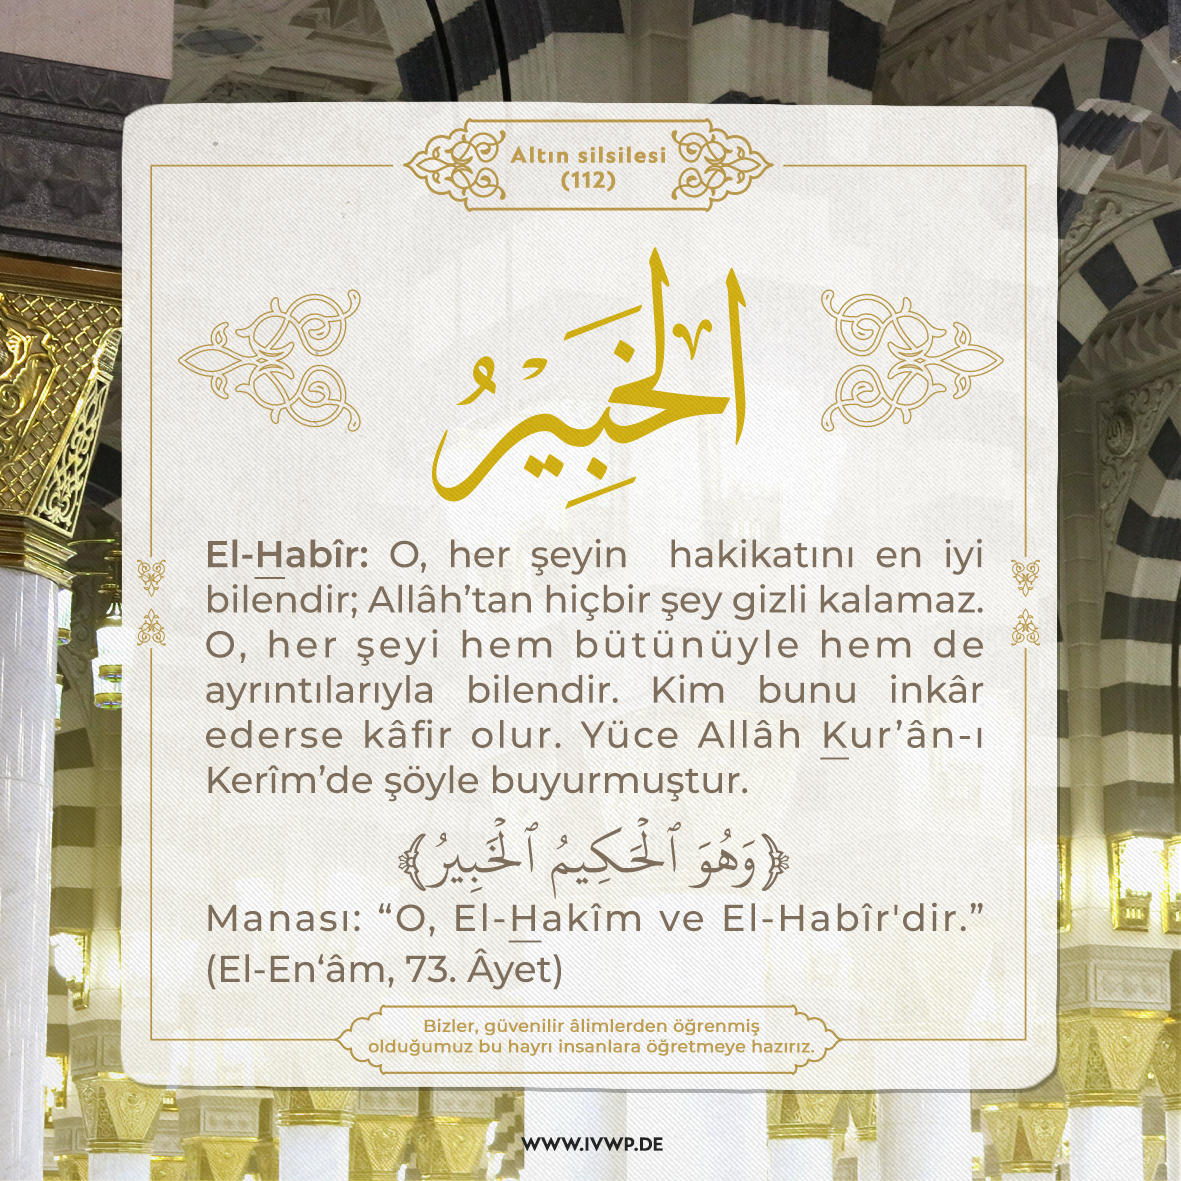 Altın silsilesi
(112)
الْخَبِيْرُ
El-Habîr: O, her şeyin hakikatını en iyi
bilendir; Allâh’tan hiçbir şey gizli kalamaz.
O, her şeyi hem bütünüyle hem de
ayrıntılarıyla bilendir. Kim bunu inkâr
ederse kâfir olur. Yüce Allâh Kur’ân-ı
Kerîm’de şöyle buyurmuştur.
﴿وَهُوَ ٱلْحَكِيمُ ٱلْخَبِيرُ﴾
Manası: “O, El-Hakîm ve El-Habîr'dir.”
(El-En‘âm, 73. Âyet)
Bizler, güvenilir âlimlerden öğrenmiş
olduğumuz bu hayrı insanlara öğretmeye hazırız.
WWW.IVWP.DE